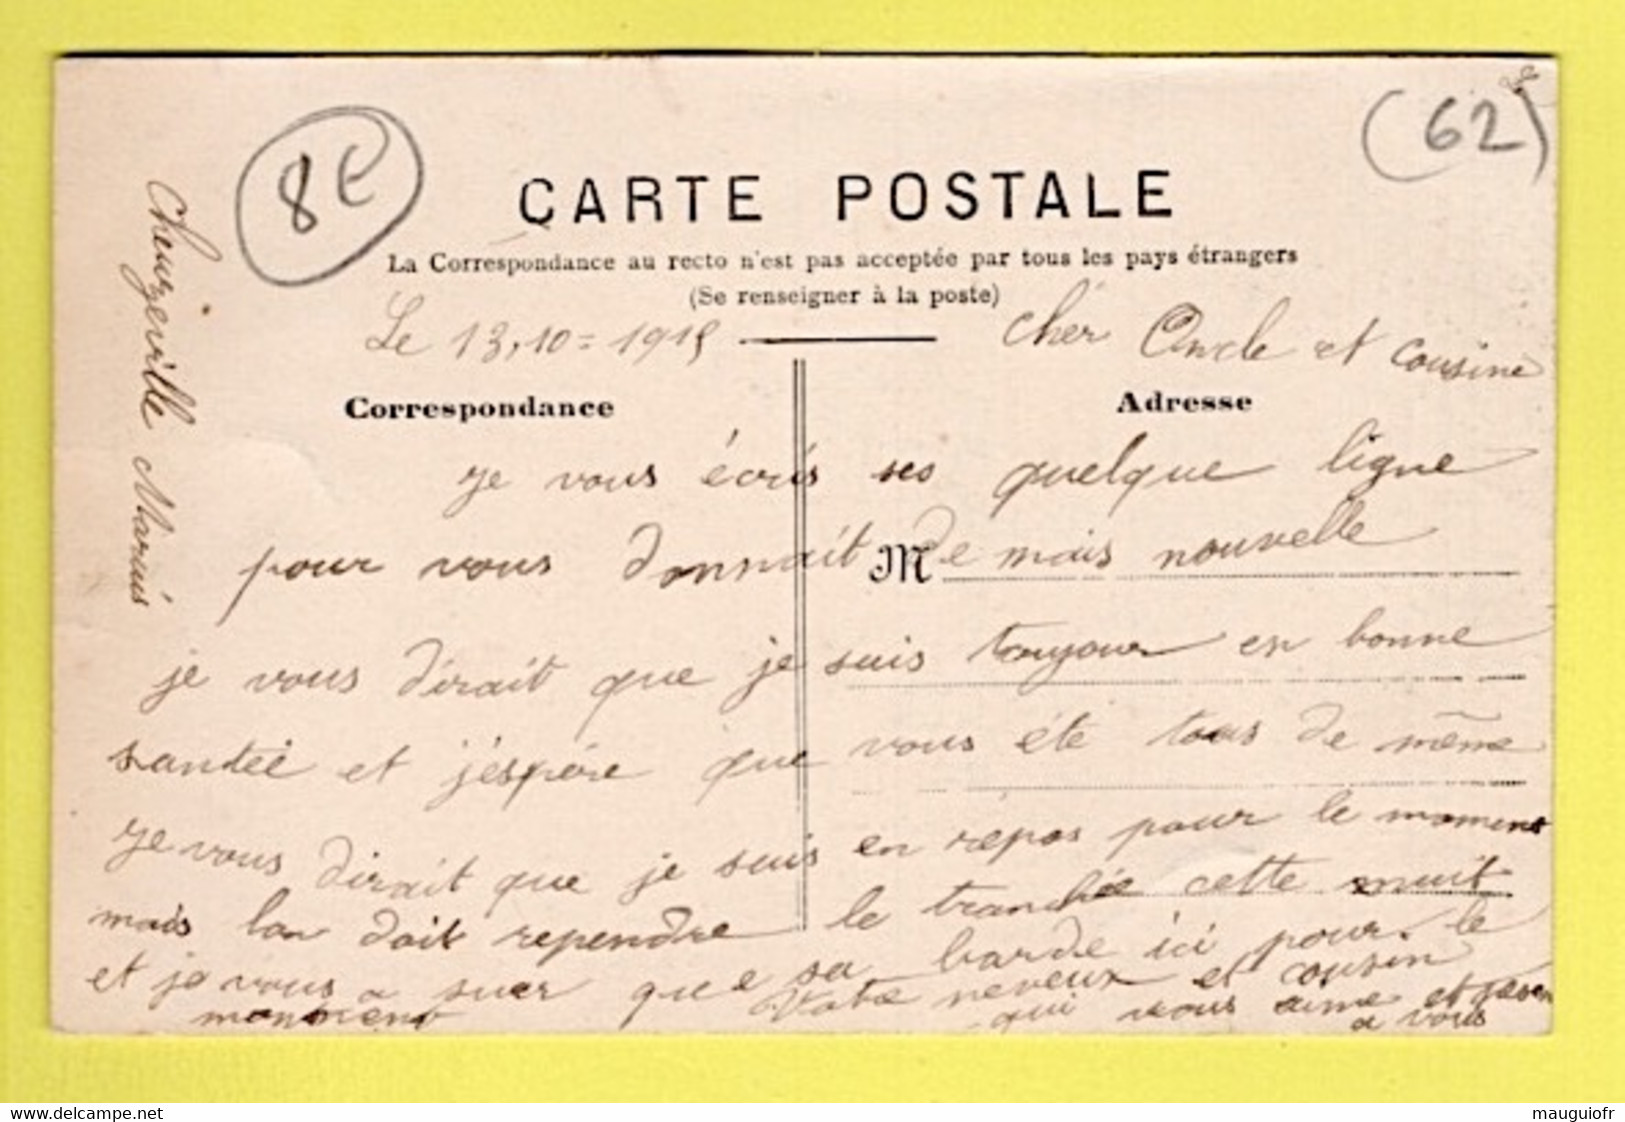 8€
(62)
CARTE POSTALE
La Correspondance au recto n'est pas acceptée par tous les pays étrangers
(Se renseigner à la poste)
Le 13,10=1915
cher Oncle et cousine
Correspondance
Adresse
je vous écris ses quelque ligne
pour vous donnait de mais nouvelle
M
je vous dirait que je suis toujour en bonne
santéé et j'éspére que vous été tous de même
je vous dirait que je suis en répos pour le moment
mais lon doit rependre le tranchée cette nuit
et je vous a suer que sa barde ici pour le
monment
Votre neveux et cousin
qui vous aime et
a vous
Marius
delcampe.net
mauguiofr